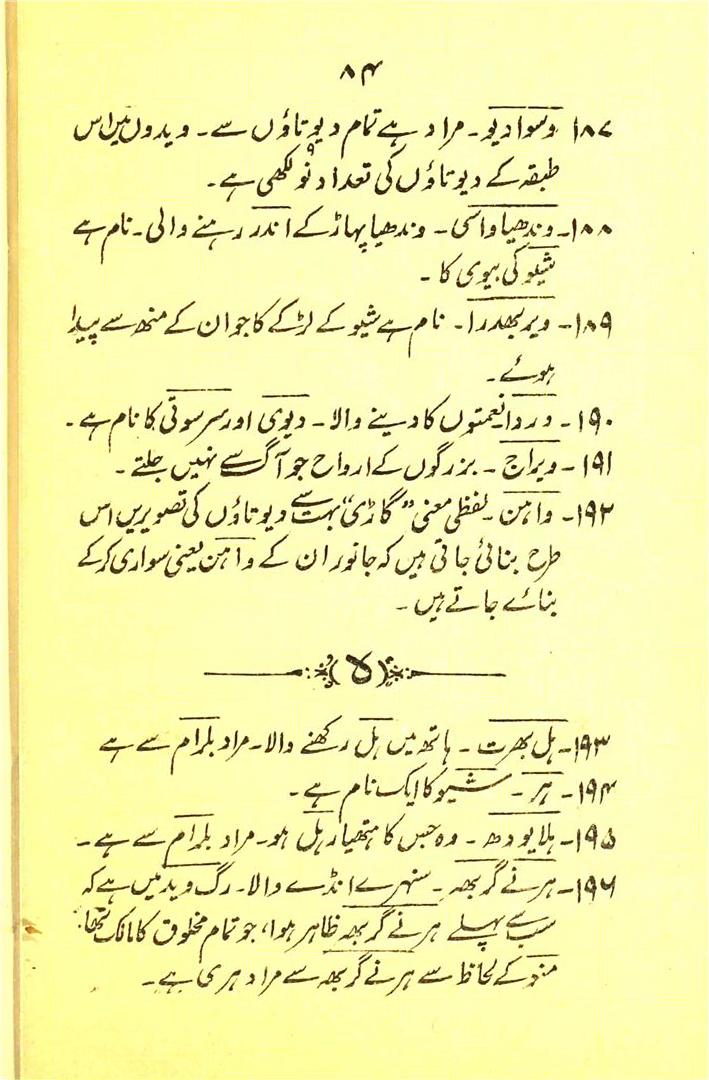 ۸۴
۱۸۷ وسوادیو۔ مراد ہے تمام دیوتاؤں سے۔ ویدوں میں اس
طبقہ کے دیوتاؤں کی تعداد نَو لکھی ہے۔
۱۸۸۔ وندھیاواسی۔ وندھیا پہاڑ کے اندر رہنے والی۔ نام ہے
شیو کی بیوی کا۔
۱۸۹۔ ویربھدرا۔ نام ہے شیو کے لڑکے کا جو ان کے منھ سے پیدا
ہوئے۔
۱۹۰۔ وردا نعمتوں کا دینے والا۔ دیوی اور سرسوتی کا نام ہے۔
۱۹۱۔ ویراج۔ بزرگوں کے ارواح جو آگ سے نہیں جلتے۔
۱۹۲۔ واہن۔ لفظی معنی "گاڑی" بہت سے دیوتاؤں کی تصویریں اس
طرح بنائی جاتی ہیں کہ جانور ان کے واہن یعنی سواری کرکے
بنائے جاتے ہیں۔
(ہ)
۱۹۳۔ ہل بھرت۔ ہاتھ میں ہل رکھنے والا۔ مراد بلرام سے ہے
۱۹۴۔ ہر۔ شیو کا ایک نام ہے۔
۱۹۵۔ ہلایودھ۔ وہ جس کا ہتھیار ہل ہو۔ مراد بلرام سے ہے۔
۱۹۶۔ ہرنے گربھہ۔ سنہرے انڈے والا۔ رگ وید میں ہے کہ
سب سے پہلے ہرنے گربھہ ظاہر ہوا، جو تمام مخلوق کا مالک تھا۔
منو کے لحاظ سے ہرنے گربھہ سے مراد ہری ہے۔